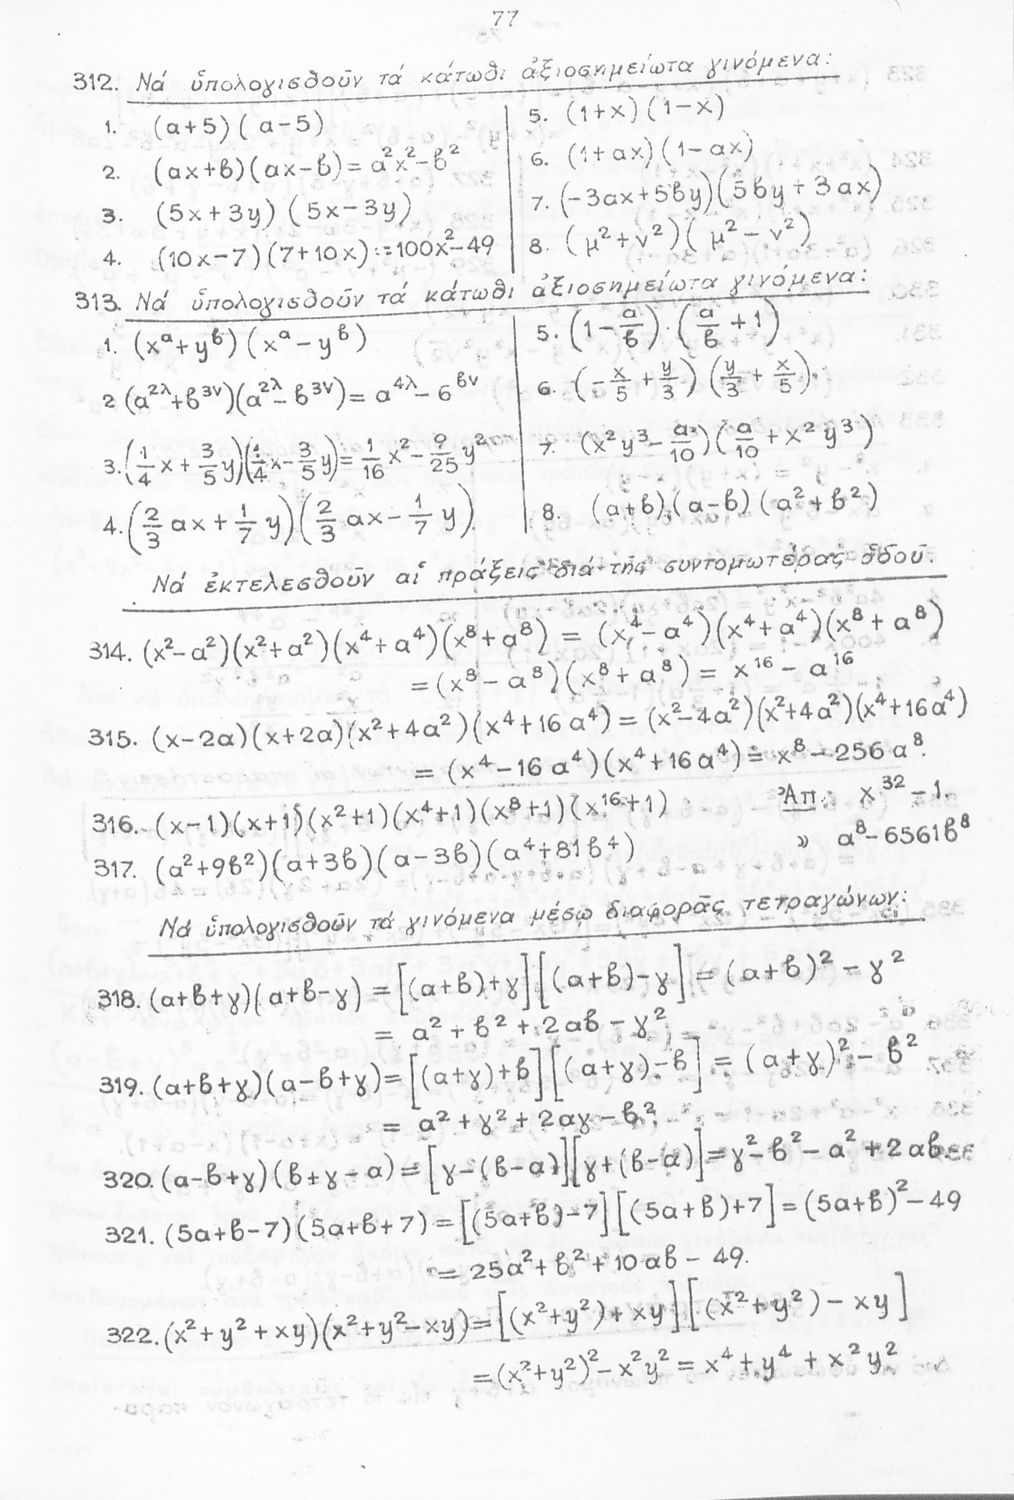 77
312. Νά ὑπολογισθοῦν τά κάτωθι ἀξιοσημείωτα γινόμενα:
1. (α+5)(α-5)
2. (αx+β)(αx-β)=α²x²-β²
3. (5x+3y)(5x-3y)
4. (10x-7)(7+10x)=100x²-49
5. (1+x)(1-x)
6. (1+αx)(1-αx)
7. (-3αx+5βy)(5βy+3αx)
8. (μ²+ν²)(μ²-ν²)
313. Νά ὑπολογισθοῦν τά κάτωθι ἀξιοσημείωτα γινόμενα:
1. (xᵅ+yᵝ)(xᵅ-yᵝ)
2 (α^{2λ}+β^{3ν})(α^{2λ}-β^{3ν})=α^{4λ}-β^{6ν}
3. (1/4 x + 3/5 y)(1/4 x - 3/5 y) = 1/16 x² - 9/25 y²
4. (2/3 αx + 1/7 y)(2/3 αx - 1/7 y)
5. (1-α/β)·(α/β+1)
6. (-x/5+y/3)(y/3+x/5)
7. (x²y³-α/10)(α/10+x²y³)
8. (α+β)(α-β)(α²+β²)
Νά ἐκτελεσθοῦν αἱ πράξεις διά τῆς συντομωτέρας ὁδοῦ.
314. (x²-α²)(x²+α²)(x⁴+α⁴)(x⁸+α⁸) = (x⁴-α⁴)(x⁴+α⁴)(x⁸+α⁸)
=(x⁸-α⁸)(x⁸+α⁸)= x¹⁶-α¹⁶
315. (x-2α)(x+2α)(x²+4α²)(x⁴+16α⁴)=(x²-4α²)(x²+4α²)(x⁴+16α⁴)
= (x⁴-16α⁴)(x⁴+16α⁴)= x⁸-256α⁸.
316. (x-1)(x+1)(x²+1)(x⁴+1)(x⁸+1)(x¹⁶+1) Ἀπ. x³²-1.
317. (α²+9β²)(α+3β)(α-3β)(α⁴+81β⁴) » α⁸-6561β⁸
Νά ὑπολογισθοῦν τά γινόμενα μέσῳ διαφορᾶς τετραγώνων:
318. (α+β+γ)(α+β-γ) =[(α+β)+γ][(α+β)-γ]=(α+β)²-γ²
= α²+β²+2αβ-γ²
319. (α+β+γ)(α-β+γ)=[(α+γ)+β][(α+γ)-β]=(α+γ)²-β²
= α²+γ²+2αγ-β².
320. (α-β+γ)(β+γ-α)=[γ-(β-α)][γ+(β-α)]=γ²-β²-α²+2αβ
321. (5α+β-7)(5α+β+7)=[(5α+β)-7][(5α+β)+7]=(5α+β)²-49
= 25α²+β²+10αβ-49.
322. (x²+y²+xy)(x²+y²-xy)=[(x²+y²)+xy][(x²+y²)-xy]
=(x²+y²)²-x²y²=x⁴+y⁴+x²y²